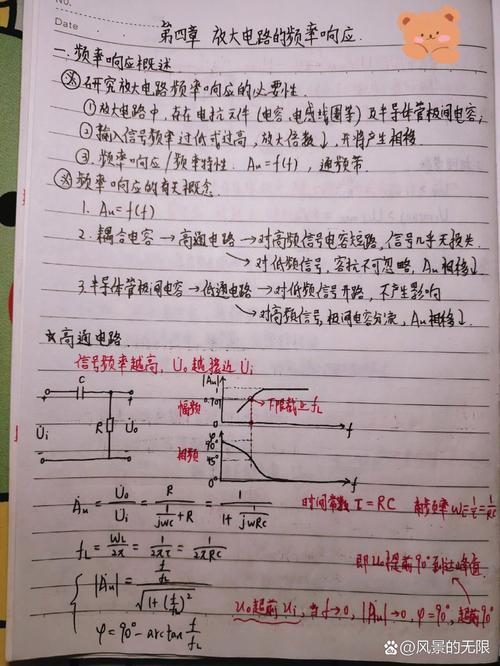 NO.
Date
第四章 放大电路的频率响应.
一. 频率响应概述
※研究放大电路频率响应的必要性.
①放大电路中, 存在电抗元件 (电容、电感线圈等) 及半导体管极间电容,
②输入信号频率过低或过高, 放大倍数↓, 并将产生相移.
③. 频率响应/频率特性. Au=f(f), 通频带.
※频率响应的有关概念.
1. Au=f(f)
2. 耦合电容→高通电路→对高频信号电容短路, 信号几乎无损失.
→对低频信号, 容抗不可忽略, Au 相移↓
3. 半导体管极间电容→低通电路→对低频信号开路, 不产生影响
→对高频信号, 极间电容分流, Au 相移↓.
☆高通电路.
信号频率越高, U̇o 越接近 U̇i
C
+ +
U̇i R U̇o
- -
|Au|
幅频 0.707 下限截止fL
f
φ
90°
相频 45°
0° f
Ȧu = U̇o/U̇i = R/(1/jwc + R) = 1/(1+1/jwRc)
时间常数 τ=RC
fL = wL/2π = 1/2πτ = 1/2πRC
即 Uo提前90°到达峰值.
|Ȧu| = (f/fL)/√(1+(f/fL)²)
Uo超前 Ui, 当f→0, |Ȧu|→0, φ=90°, 超前90°
φ=90°-arctan f/fL
@风景的无限